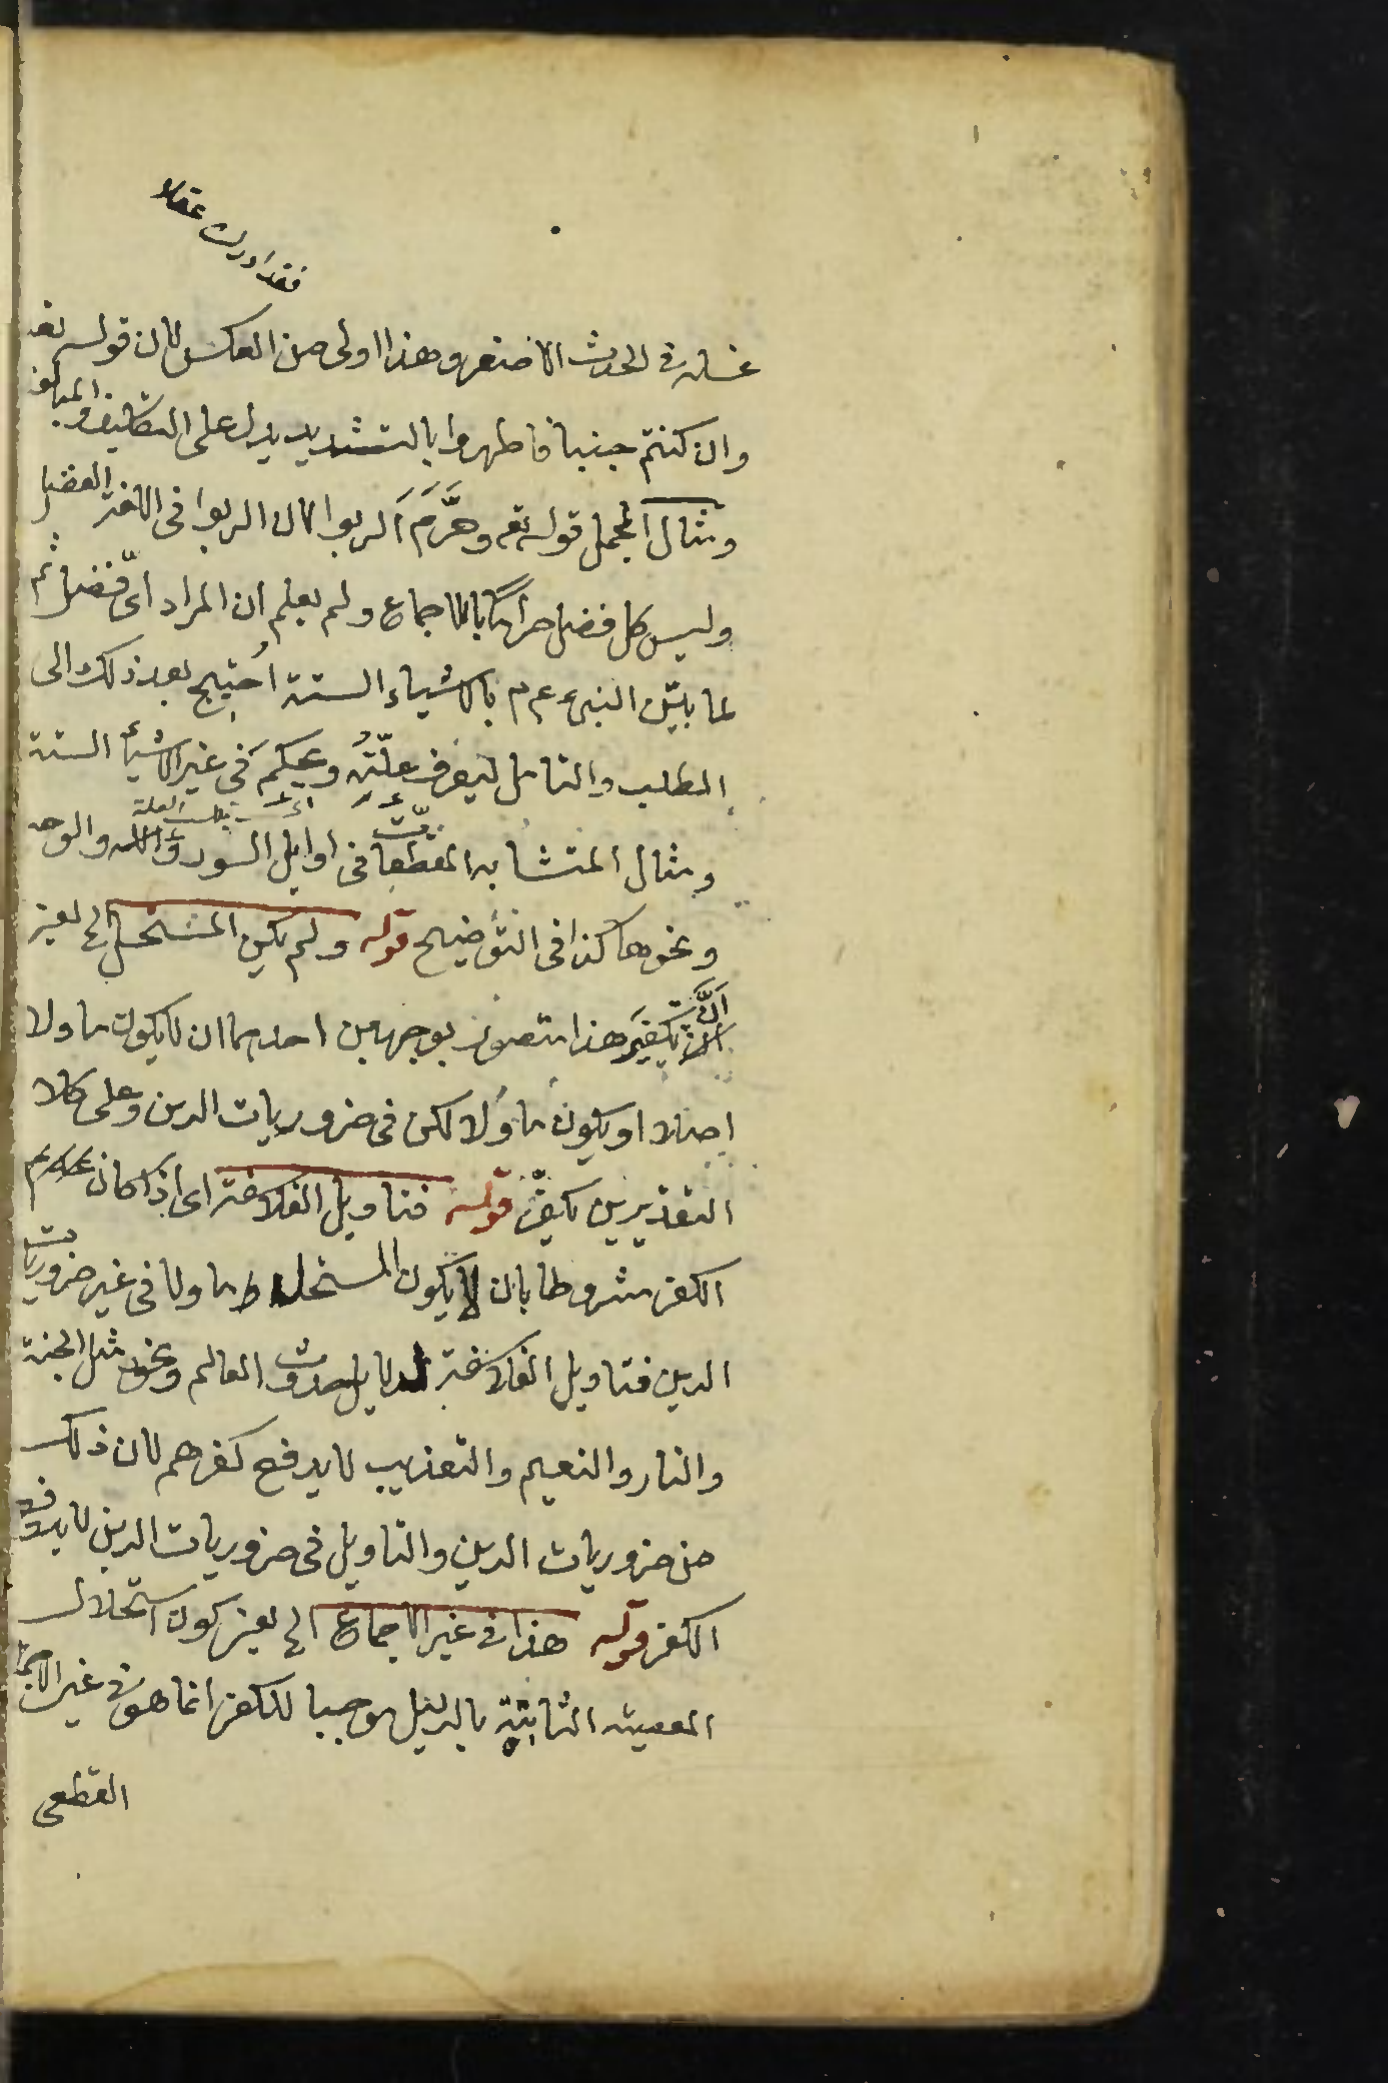 فقد ادرك عقلا
غسله فى الحدث الاصغر وهذا اولى من العكس لان قوله تعـ
وان كنتم جنبا فاطهروا بالتشديد يدل على التكليف والمبالغة
ومثال المجمل قوله تعـ وحَرَّمَ الربوا لان الربوا فى اللغة الفضل
وليس كل فضل حراما بالاجماع ولم يعلم ان المراد اىّ فضل ثم
لما بيّن النبى ء م بالاشياء الستة اُحتيج بعد ذلك الى
الطلب والتامل ليعرف علّتهُ وحكم فى غير الاشيأ الستة
ومثال المتشابه المقطّعات فى اوايل السور واليد والوجه
ونحوها كذا فى التوضيح قوله ولم يكن المستحل الخ يعنى
اَنَّ تكفيرَ هذا متصور بوجهين احدهما ان لا يكون ماولا
اصلا او يكون ماؤلا لكن فى ضروريات الدين وعلى كلا
التقديرين يكفّر قوله فتاويل الفلاسفة اى اذا كان عدم
الكفر مشروطا بان لا يكون المستحل ماولا فى غير ضروريات
الدين فتاويل الفلاسفة لدلايل حدوث العالم ونحوه مثل الجنة
والنار والنعيم والتعذيب لا يدفع كفرهم لان ذلك
من ضروريات الدين والتاويل فى ضروريات الدين لا يدفع
الكفر قوله هذا فى غير الاجماع الخ يعنى كون استحلال
المعصية الثابتة بالدليل موجبا للكفر انما هو فى غير الاجماع
القطعى